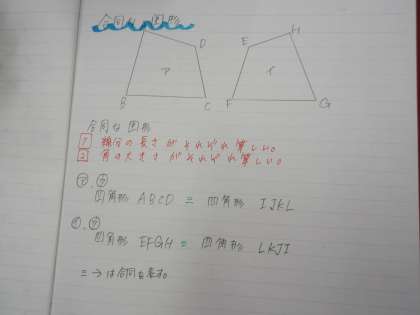 合同な図形
D
E
H
ア
イ
B
C
F
G
合同な図形
1 線分の長さがそれぞれ等しい。
2 角の大きさがそれぞれ等しい。
ア、ウ
四角形 ABCD ≡ 四角形 IJKL
四角形 EFGH ≡ 四角形 LKJI
≡ → は合同を表す。